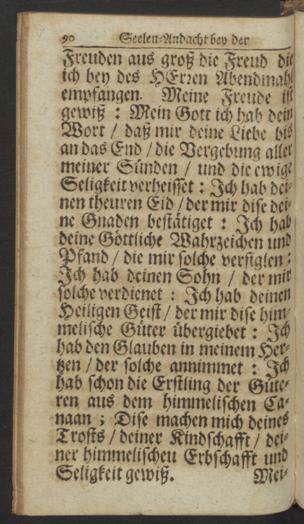 90 Seelen-Andacht bey der
Freuden aus groß die Freud die
ich bey des HErren Abendmahl
empfangen. Meine Freude ist
gewiß : Mein Gott ich hab dein
Wort / daß mir deine Liebe bis
an das End / die Vergebung aller
meiner Sünden / und die ewige
Seligkeit verheisset : Ich hab dei-
nen theuren Eid / der mir dise dei-
ne Gnaden bestätiget : Ich hab
deine Göttliche Wahrzeichen und
Pfand / die mir solche versiglen :
Ich hab deinen Sohn / der mir
solche verdienet : Ich hab deinen
Heiligen Geist / der mir dise him-
melische Güter übergiebet : Ich
hab den Glauben in meinem Her-
tzen / der solche annimmet : Ich
hab schon die Erstling der Güte-
ren aus dem himmelischen Ca-
naan ; Dise machen mich deines
Trosts / deiner Kindschafft / dei-
ner himmelischeu Erbschafft und
Seligkeit gewiß. Mei-